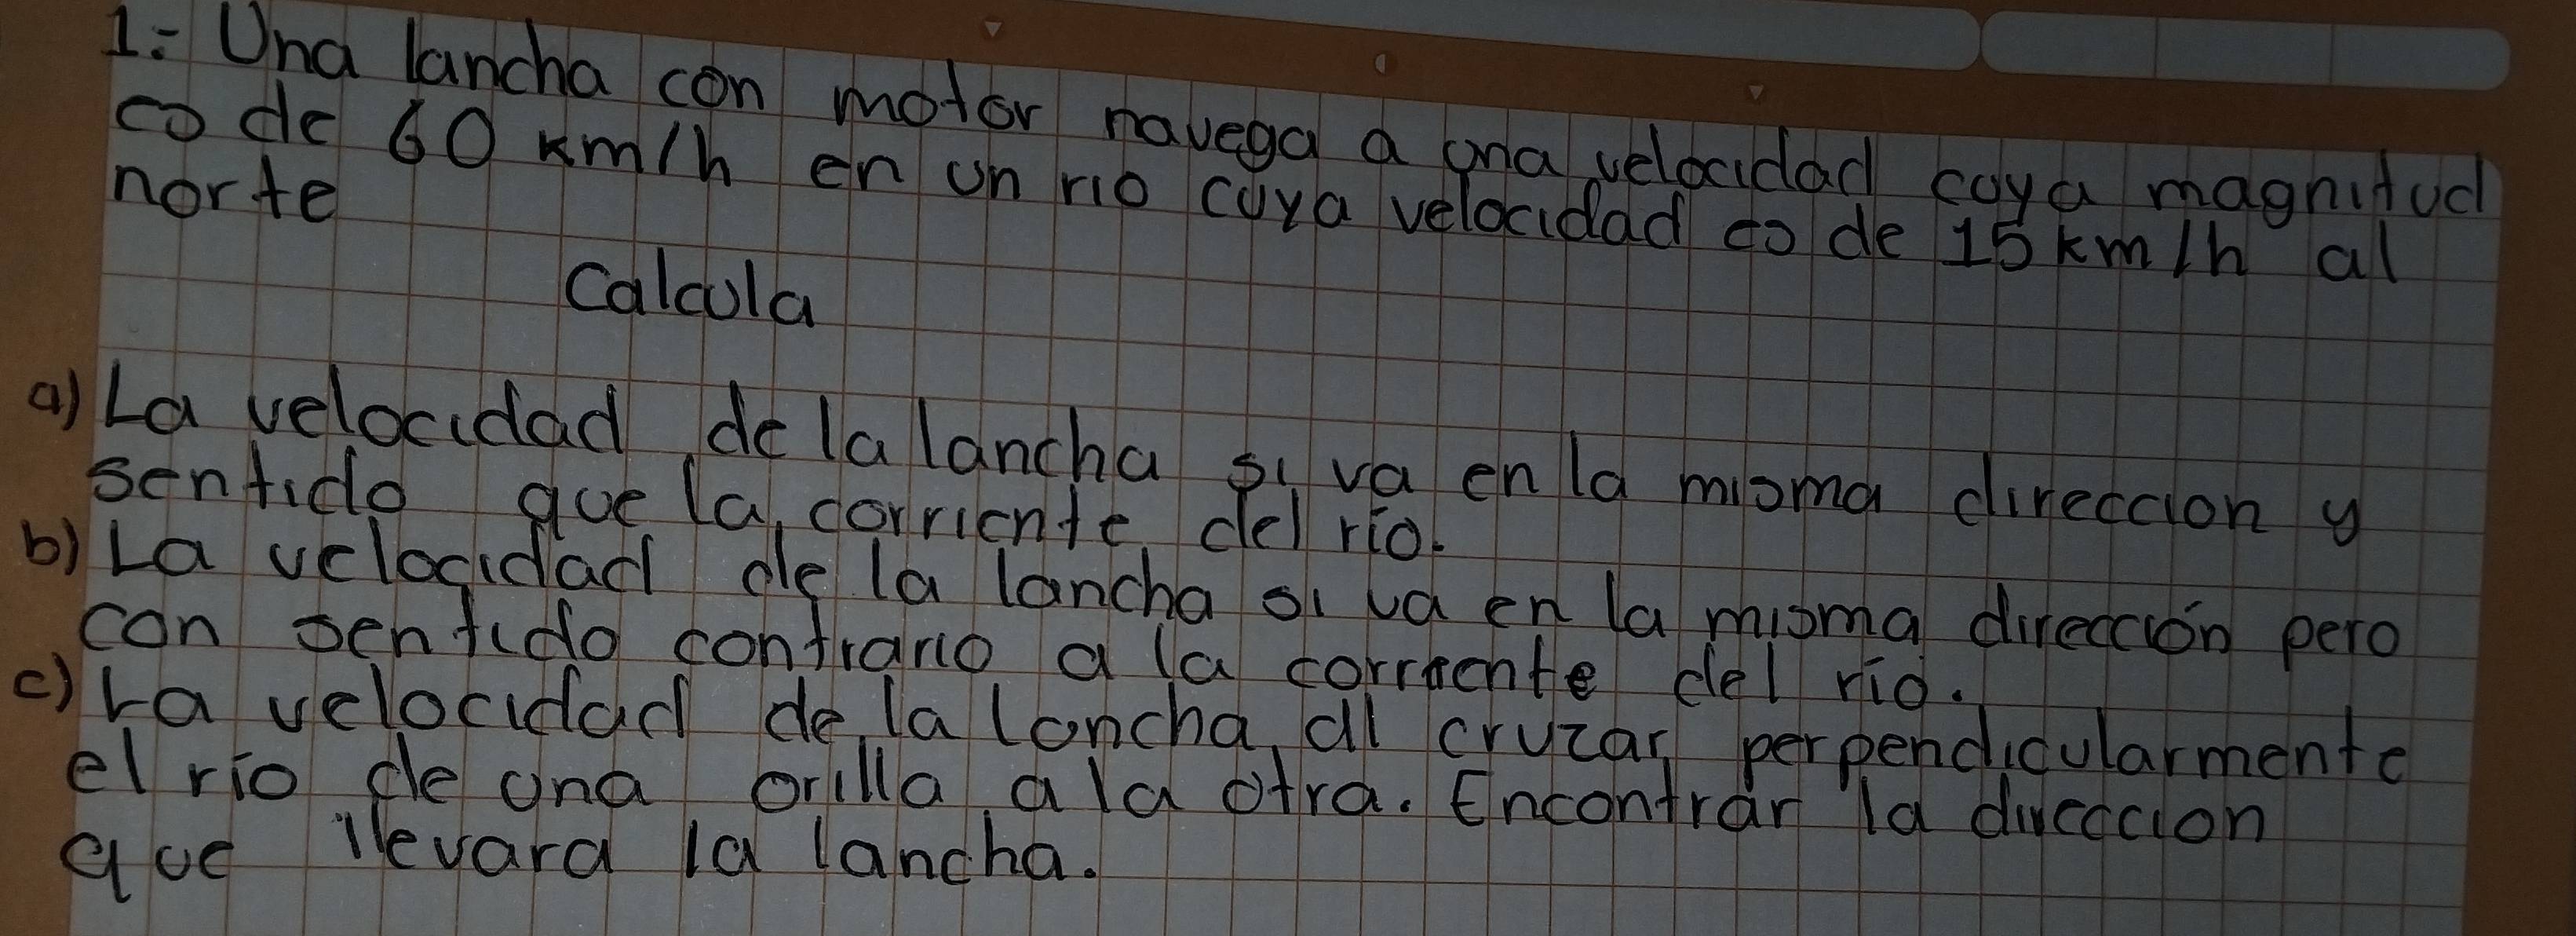 1:- Una lancha con motor navega a una velocidad cuya magnitud
es de 60 km/h en un rio cuya velocidad es de 15 km/h al
norte
Calcula
a) La velocidad de la lancha si va en la misma direccion y
sentido que la corriente del río.
b) La velocidad de la lancha si va en la misma dirección pero
con sentido contrario a la corriente del río.
c) La velocidad de la lancha al cruzar perpendicularmente
el río de una orilla a la otra. Encontrar la direccion
que llevara la lancha.